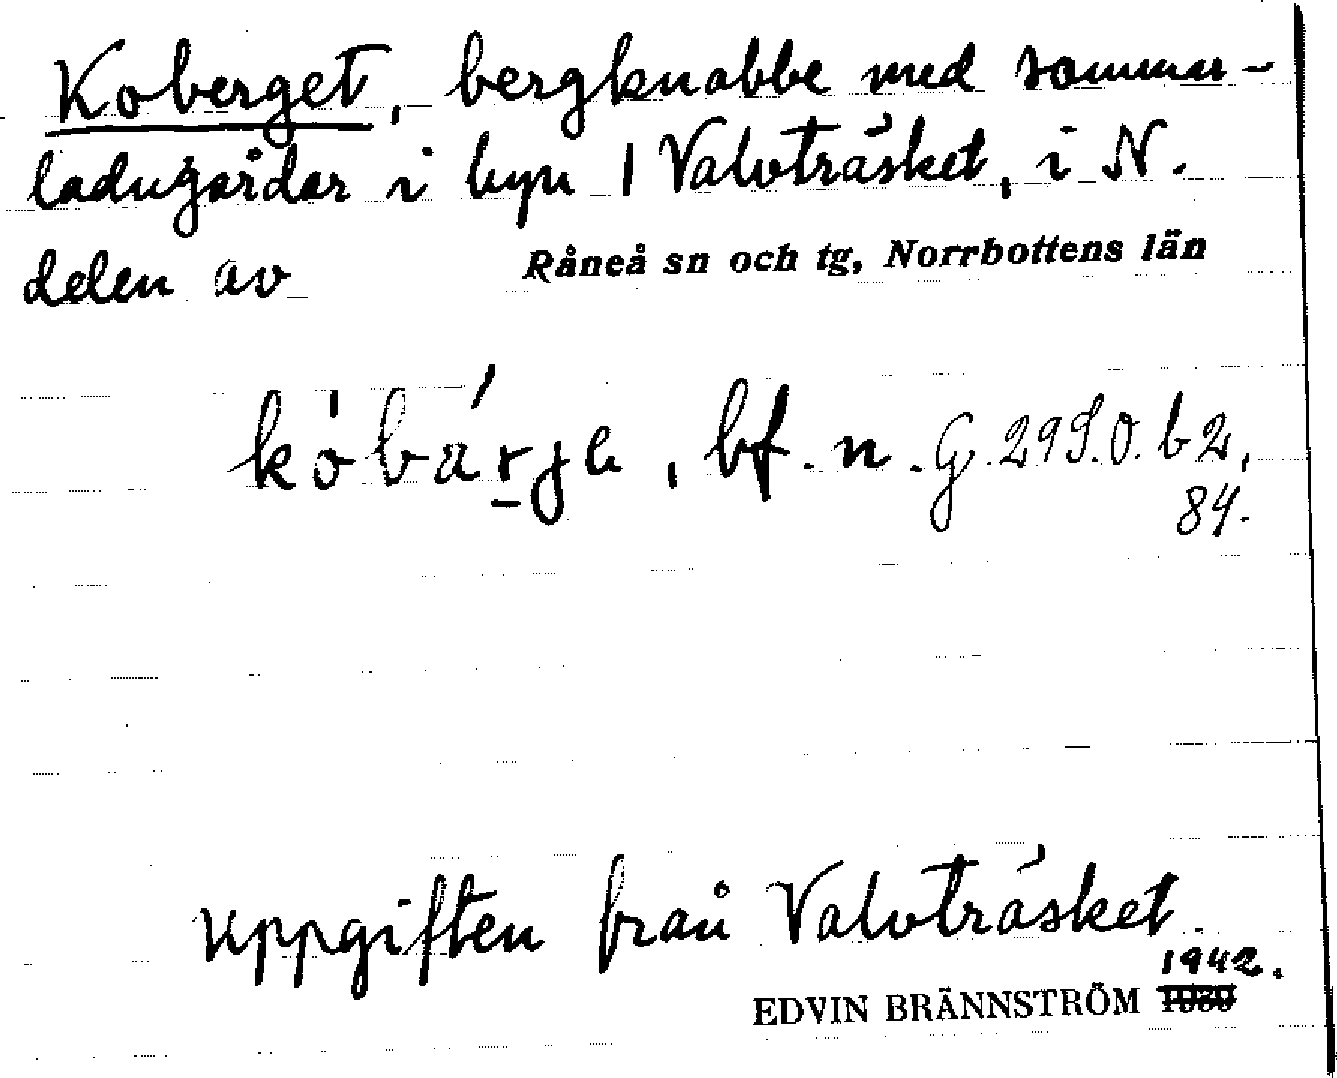 Koberget, bergknabbe med sommar-
ladugårdar i byn 1 Valvträsket, i N.
delen av Råneå sn och tg, Norrbottens län
kóbárje, bf. n. G. 295.0. b 2,
84.
Uppgiften från Valvträsket
1942.
EDVIN BRÄNNSTRÖM